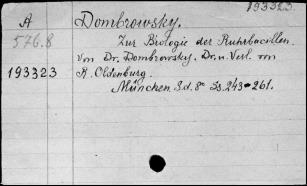 193323
A Dombrowsky.
576.8 Zur Biologie der Ruhrbacillen.
von Dr. Dombrowsky. Dr. u. Verl. von
193323 R. Oldenburg.
München S.d. 8° Ss. 243-261.